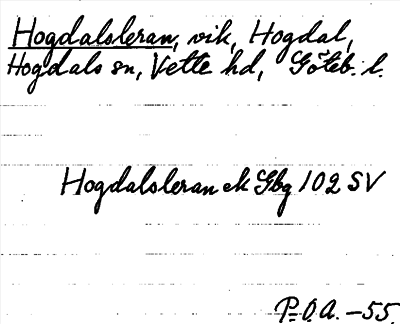 Hogdalsleran, vik, Hogdal,
Hogdals sn, Vette hd, Göteb. l.
Hogdalsleran ek Gbg 102 SV
P.O.A. -55.